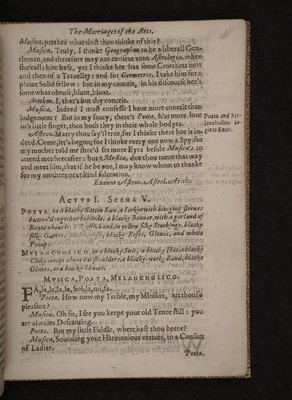 The Marriages of the Arts.
Musica, prethee what dost thou thinke of this?
Musica. Truly, I thinke Geographus to be a liberall Gen-
tleman, and therefore may not consent unto Astrologia, when
shee calls him base, yet I thinke hee has some Crotchets now
and then of a Traveller: and for Geometres, I take him for a
plaine Solid fellow: but in my conceit, in his discourse hee's
somewhat obtuse, blunt, blunt.
Arithm. I, that's but thy conceit.
Musica. Indeed I must confesse I have more conceit than
Iudgement: But in my fancy, there's Poeta, h'as more soul
in's little finger, then both they in their whole bodyes.
Astron. Marry thou say'st true, for I thinke there hee is in-
deed. Come, let's begon; for I thinke every one now a Spy: for
my mother told me shee'd be
attend mee hereafter: but Musica, doe you turne that way
and meet him, that if he be one, I may know whom to thanke
for my mothers next kind salutation.
Exeunt Astron. Astrol. Arith.
Poeta and Me-
lancholico
Actus I. Scena V.
Poeta, in a blacke Sattin Suit,
Melancholico, in a blacke Suit, a blacke Hat, a blacke
Cloke
Gloves, and blacke Shooes.
Musica, Poeta, Melancholico.
Fa, la, la, la, la, Sol, la, mi, fa.
Poeta. How now my Treble, my Minikin, art thou
pleasant?
Musica. Oh sir, I see you keepe your old Tenor still: you
are alwaies Descanting.
Poeta. But my little Fiddle, where hast thou beene?
Musica. Sounding your Harmonious vertues, to a Consort
of Ladies.
Poeta.